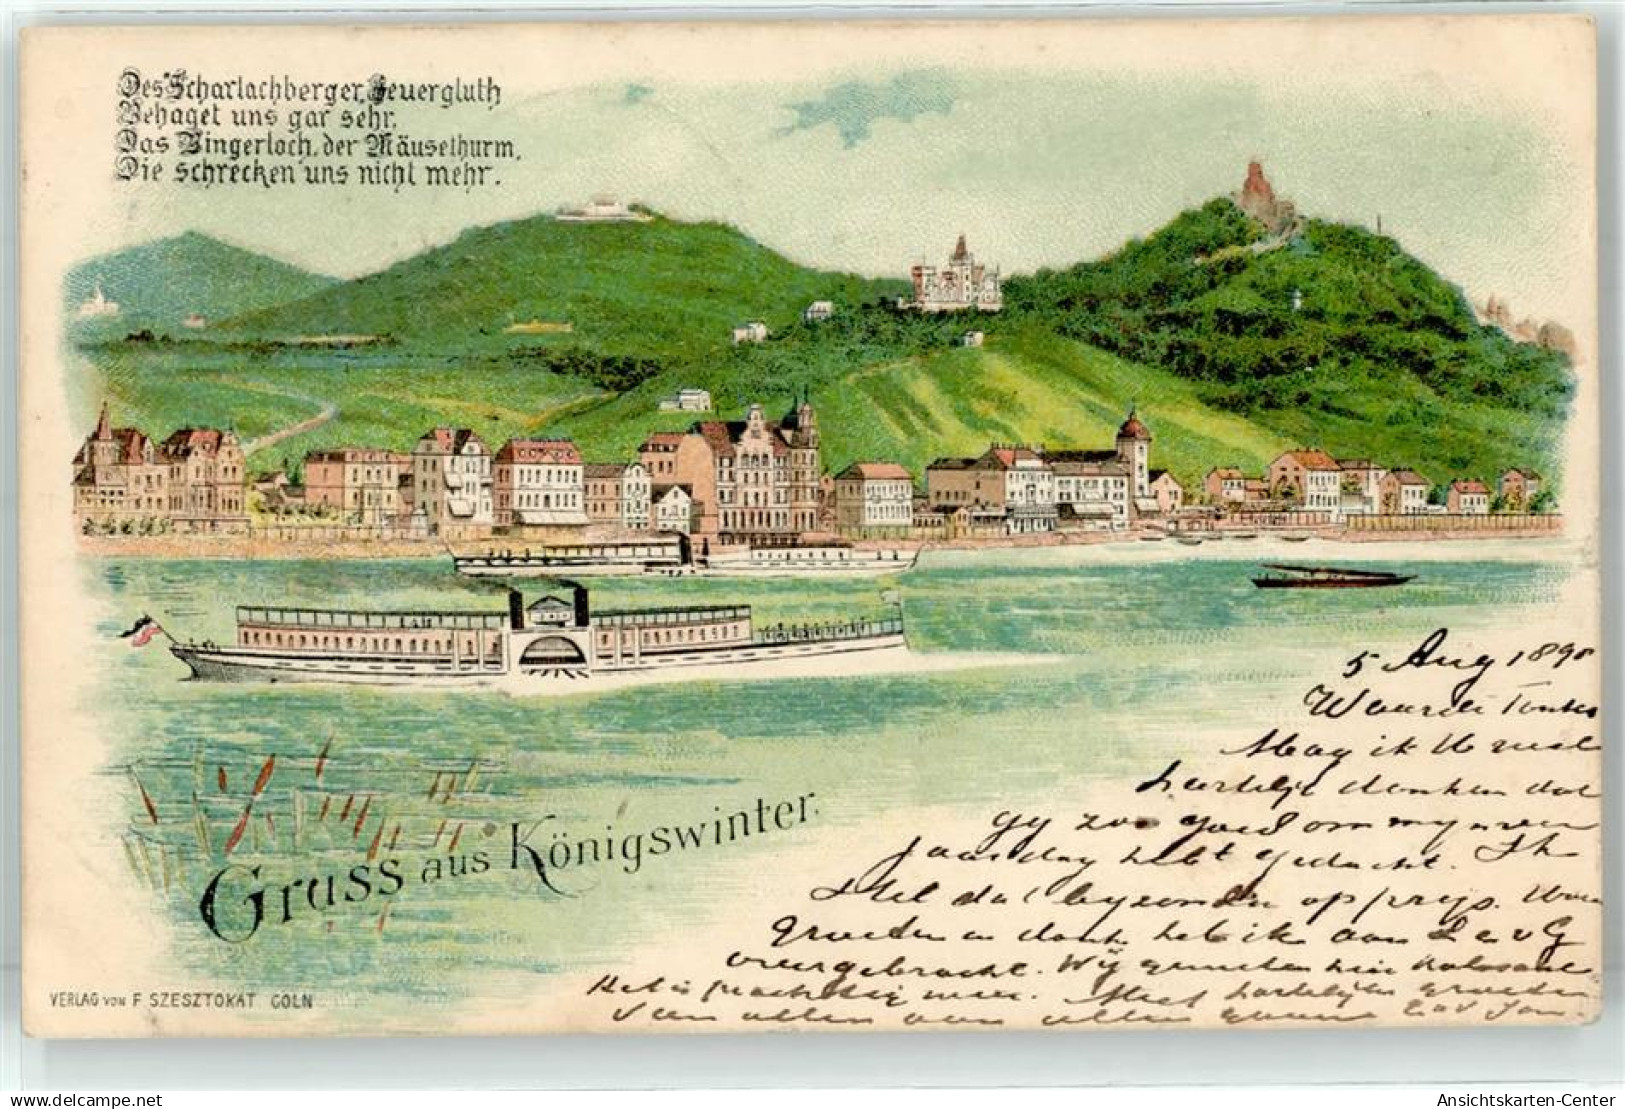 Des Scharlachberger Feuergluth
Behaget uns gar sehr.
Das Bingerloch, der Mäusethurm,
Die schrecken uns nicht mehr.
5 Aug 1898
Waarde Tante
Mag ik U veel
hartelijk danken dat
gy zoo goed om myn
jaardag hebt gedacht. Ik
stel dat byzonder op prys. Uwe
groeten en dank heb ik aan L en G
overgebracht. Wij genieten hier kolossaal
Het is prachtig weer. Met hartelijke groeten
van allen aan allen
Gruss aus Königswinter.
VERLAG VON F. SZESZTOKAT CÖLN
Ansichtskarten-Center